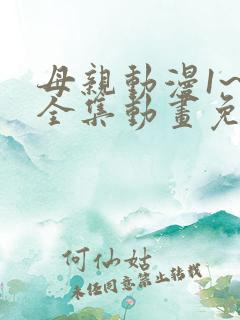 母親動漫1~
全集動畫免
何仙姑
未经同意禁止转载